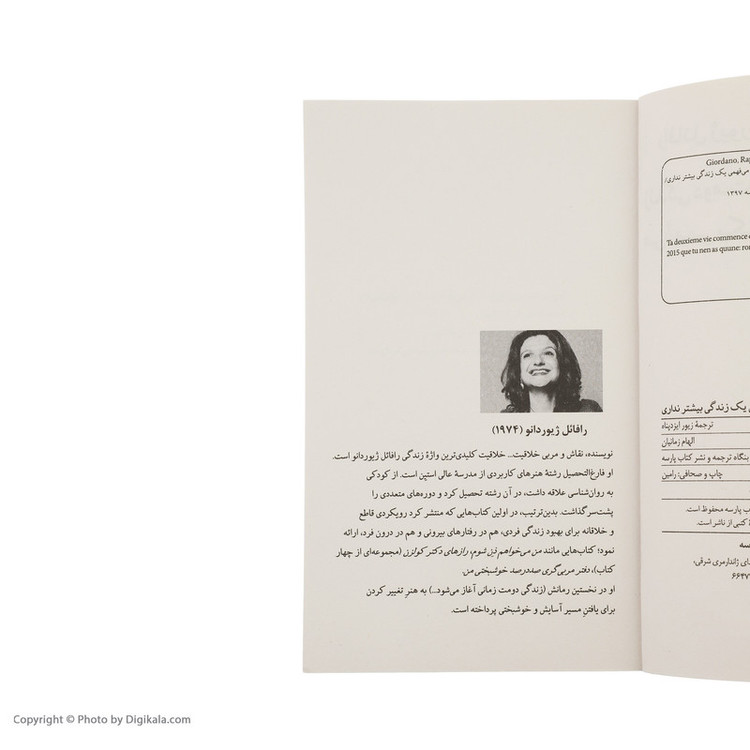 رافائل ژیوردانو (۱۹۷۴)
نویسنده، نقاش و مربی خلاقیت... خلاقیت کلیدی‌ترین واژهٔ زندگی رافائل ژیوردانو است.
او فارغ‌التحصیل رشتهٔ هنرهای کاربردی از مدرسهٔ عالی استین است. از کودکی
به روان‌شناسی علاقه داشت، در آن رشته تحصیل کرد و دوره‌های متعددی را
پشت‌سر گذاشت. بدین‌ترتیب، در اولین کتاب‌هایی که منتشر کرد رویکردی قاطع
و خلاقانه برای بهبود زندگی فردی، هم در رفتارهای بیرونی و هم در درون فرد، ارائه
نمود؛ کتاب‌هایی مانند من می‌خواهم ذِن شوم، رازهای دکتر کولزن (مجموعه‌ای از چهار
کتاب)، دفتر مربی‌گری صددرصد خوشبختی من.
او در نخستین رمانش (زندگی دومت زمانی آغاز می‌شود...) به هنرِ تغییر کردن
برای یافتنِ مسیر آسایش و خوشبختی پرداخته است.
Giordano, Ra
می‌فهمی یک زندگی بیشتر نداری/
۱۳۹۷
Ta deuxieme vie commence
2015 que tu nen as quune: ro
یک زندگی بیشتر نداری
ترجمهٔ زیور ایزدپناه
الهام زمانیان
بنگاه ترجمه و نشر کتاب پارسه
چاپ و صحافی: رامین
پارسه محفوظ است.
کتبی از ناشر است.
ژاندارمری شرقی،
۶۶۴۷
Copyright © Photo by Digikala.com